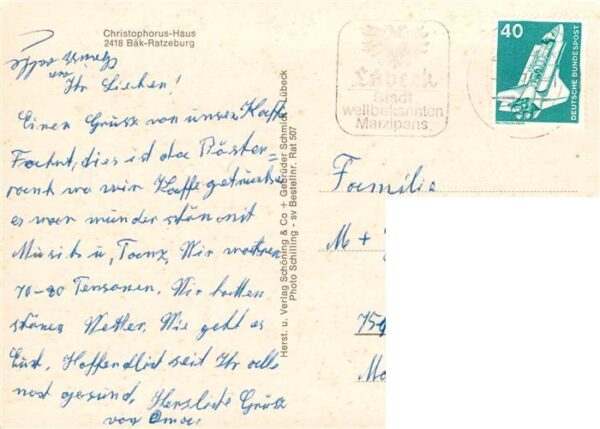 Christophorus-Haus
2418 Bäk-Ratzeburg
Ihr Lieben!
Einen Gruss von unser Kaffe
Fahrt, dies ist das
wo wir Kaffe getrunken
es war wunder schön mit
Musik u, Tanz, Wir wahren
70-80 Personen. Wir hatten
schönes Wetter. Wie geht es
Euch, Hoffendlich seit Ihr alle
noch gesund, Herzliche Grüse
von Omas
Herst. u. Verlag Schöning & Co + Gebrüder Schmidt Lübeck
Photo Schilling - sv Bestellnr. Rat 507
Lübeck
Stadt
weltbekannten
Marzipans
40
DEUTSCHE BUNDESPOST
Familie
M +